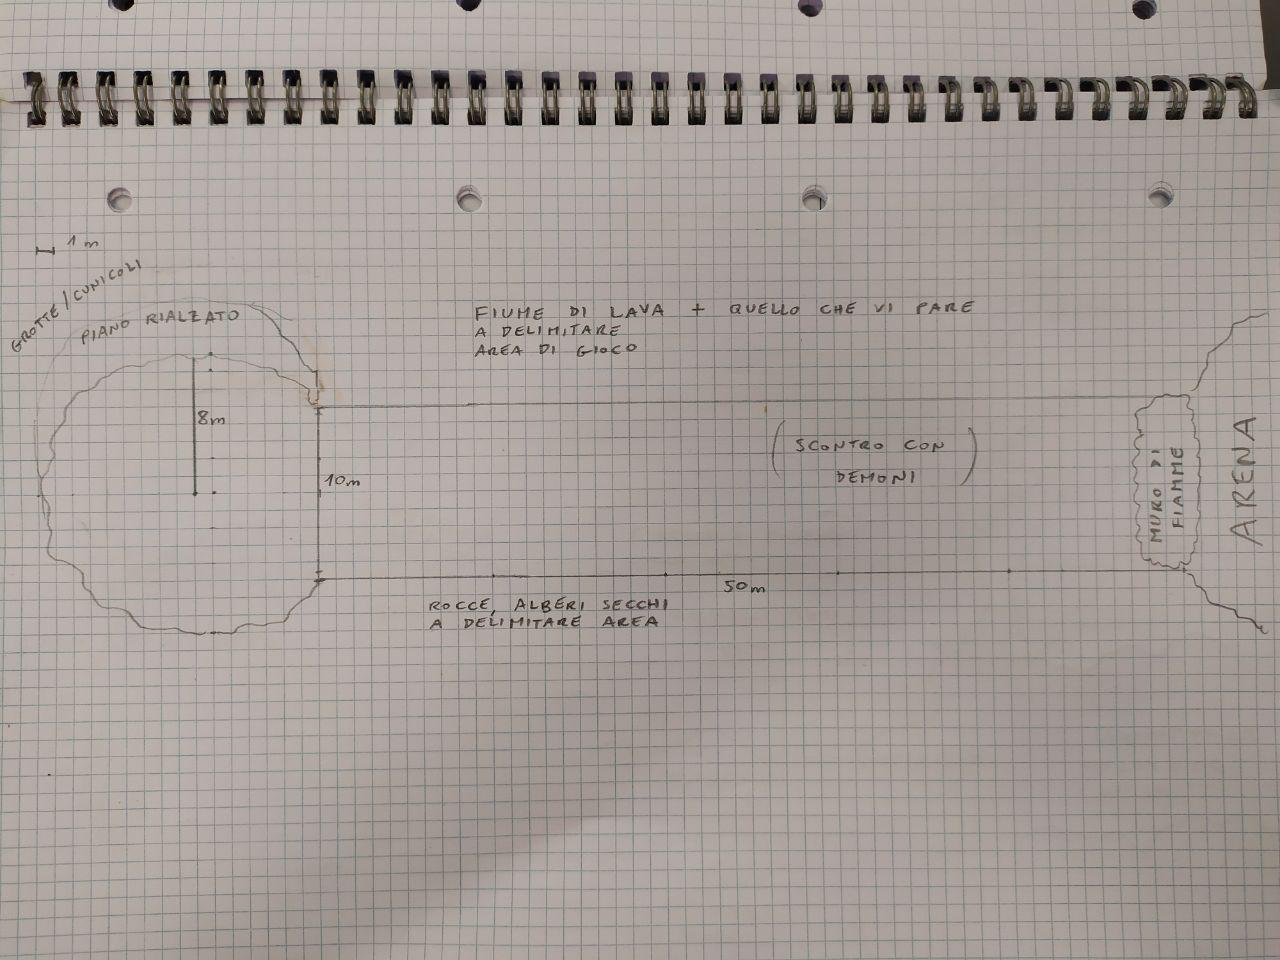 1 m
GROTTE/CUNICOLI
PIANO RIALZATO
FIUME DI LAVA + QUELLO CHE VI PARE
A DELIMITARE
AREA DI GIOCO
8m
10m
(SCONTRO CON
DEMONI)
MURO DI
FIAMME
ARENA
50m
ROCCE, ALBERI SECCHI
A DELIMITARE AREA